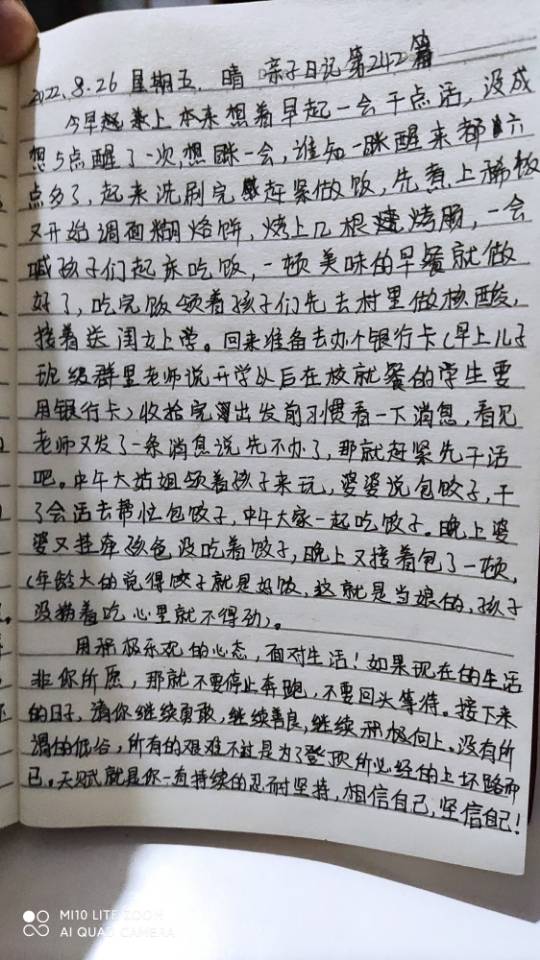 2022.8.26 星期五. 晴 亲子日记第242篇
今早起来上本来想着早起一会干点活,没成
想5点醒了一次,想眯一会,谁知一眯醒来都六
点多了,起来洗刷完赶紧做饭,先煮上稀饭
又开始调面糊烙饼,烤上几根烤肠,一会
喊孩子们起床吃饭,一顿美味的早餐就做
好了,吃完饭领着孩子们先去村里做核酸,
接着送闺女上学。回来准备去办个银行卡(早上儿子
班级群里老师说开学以后在校就餐的学生要
用银行卡)收拾完出发前习惯看一下消息,看见
老师又发了一条消息说先不办了,那就赶紧先干活
吧。中午大姑姐领着孩子来玩,婆婆说包饺子,干
了会活去帮忙包饺子,中午大家一起吃饺子。晚上婆
婆又挂牵孩爸没吃着饺子,晚上又接着包了一顿,
(年龄大的觉得饺子就是好饭,这就是当娘的,孩子
没捞着吃心里就不得劲)。
用积极乐观的心态,面对生活!如果现在的生活
非你所愿,那就不要停止奔跑,不要回头等待。接下来
的日子,请你继续勇敢,继续善良,继续积极向上,没有所
谓的低谷,所有的艰难不过是为了登顶所必经的上坡路而
已。天赋就是你一直持续的忍耐坚持,相信自己,坚信自己!
MI10 LITE ZOOM
AI QUAD CAMERA